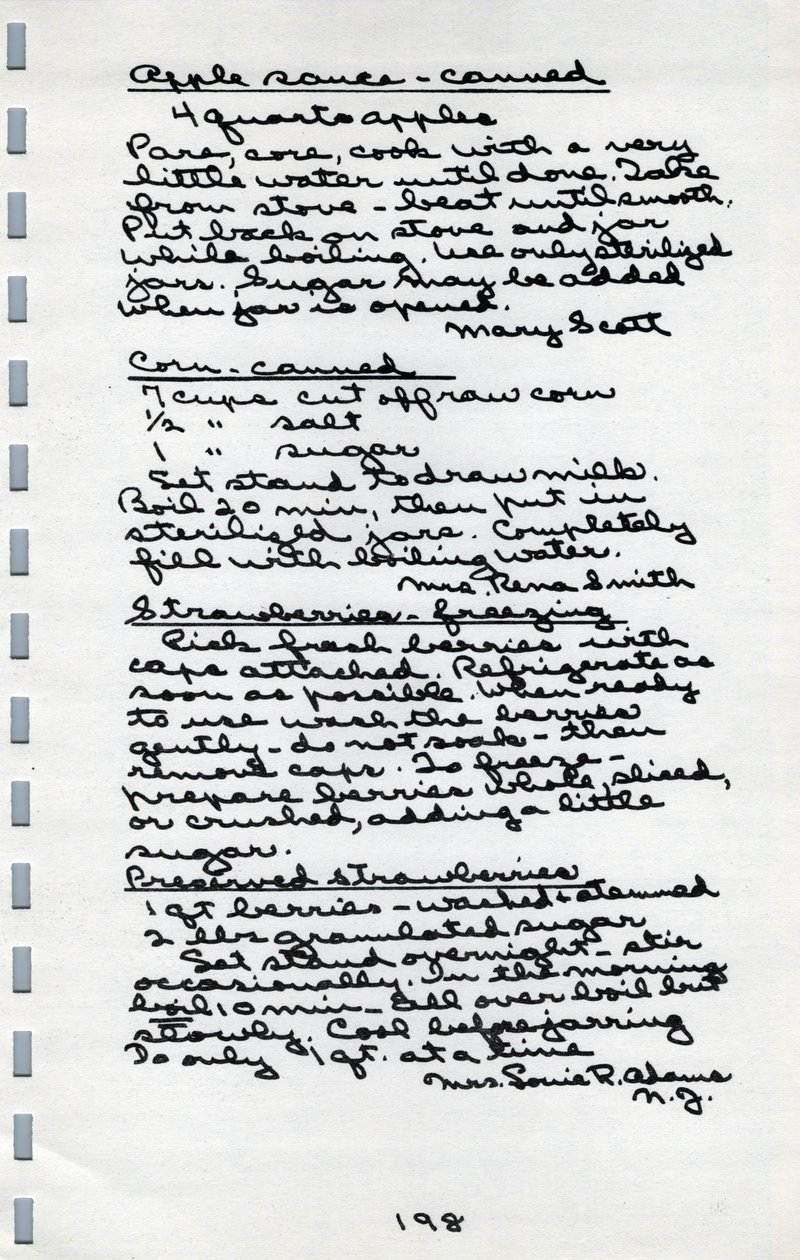 Apple sauce - canned
4 quarts apples
Pare, core, cook with a very
little water until done. Take
from stove - beat until smooth.
Put back on stove and jar
while boiling. Use only sterilized
jars. Sugar may be added
when jar is opened.
Mary Scott
Corn - canned
7 cups cut off raw corn
1/2 " salt
1 " sugar
Set stand to draw milk.
Boil 20 min, then put in
sterilized jars. Completely
fill with boiling water.
Mrs. Rena Smith
Strawberries - freezing
Pick fresh berries with
caps attached. Refrigerate as
soon as possible. When ready
to use wash the berries
gently - do not soak - then
remove caps. To freeze -
prepare berries whole, sliced,
or crushed, adding a little
sugar.
Preserved Strawberries
1 qt berries - washed + stemmed
2 lbs granulated sugar
Set stand overnight - stir
occasionally. In the morning
boil 10 min - all over boil but
slowly. Cool before jarring
Do only 1 qt. at a time
Mrs. Louie R. Adams
N.J.
198